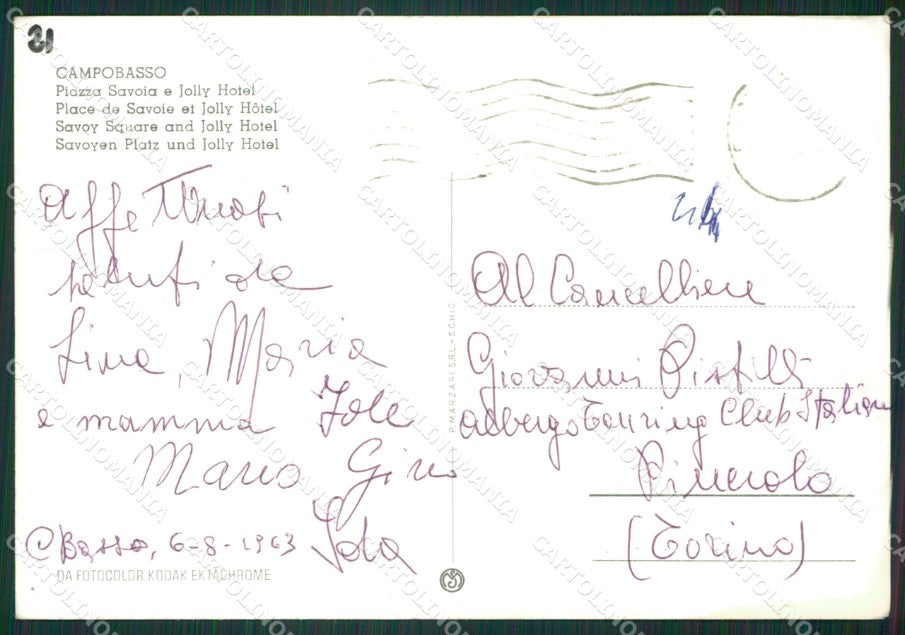 21
CAMPOBASSO
Piazza Savoia e Jolly Hotel
Place de Savoie et Jolly Hôtel
Savoy Square and Jolly Hotel
Savoyen Platz und Jolly Hotel
Affettuosi
saluti da
Lina, Maria
e mamma Iole
Mario Gino
C Basso, 6-8-1963
DA FOTOCOLOR KODAK EKTACHROME
P. MARZARI S.R.L. - SCHIO
Al Cancelliere
Giovanni Pistilli
albergo Touring Club Italiano
Pinerolo
(Torino)
CARTOLINOMANIA